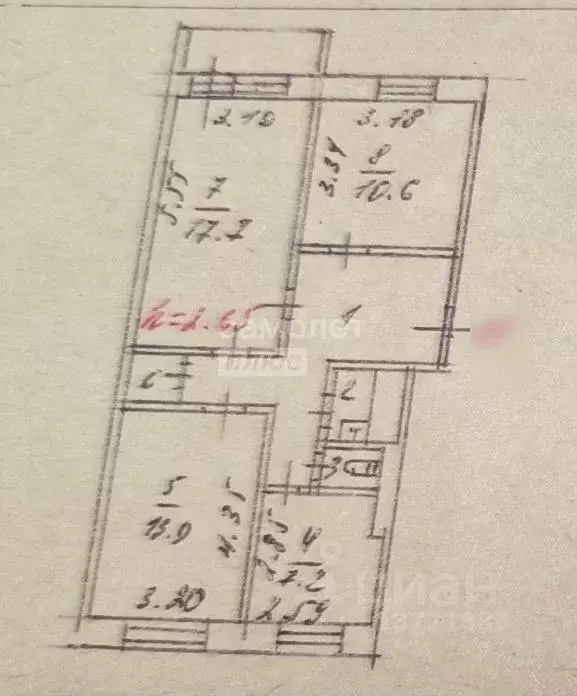 3.19
3.18
5.55
7
17.7
3.34
8
10.6
h=2.65
1
самолет
плюс
6
2
3
5
13.9
4.35
2.85
4
7.2
3.20
2.59
циан